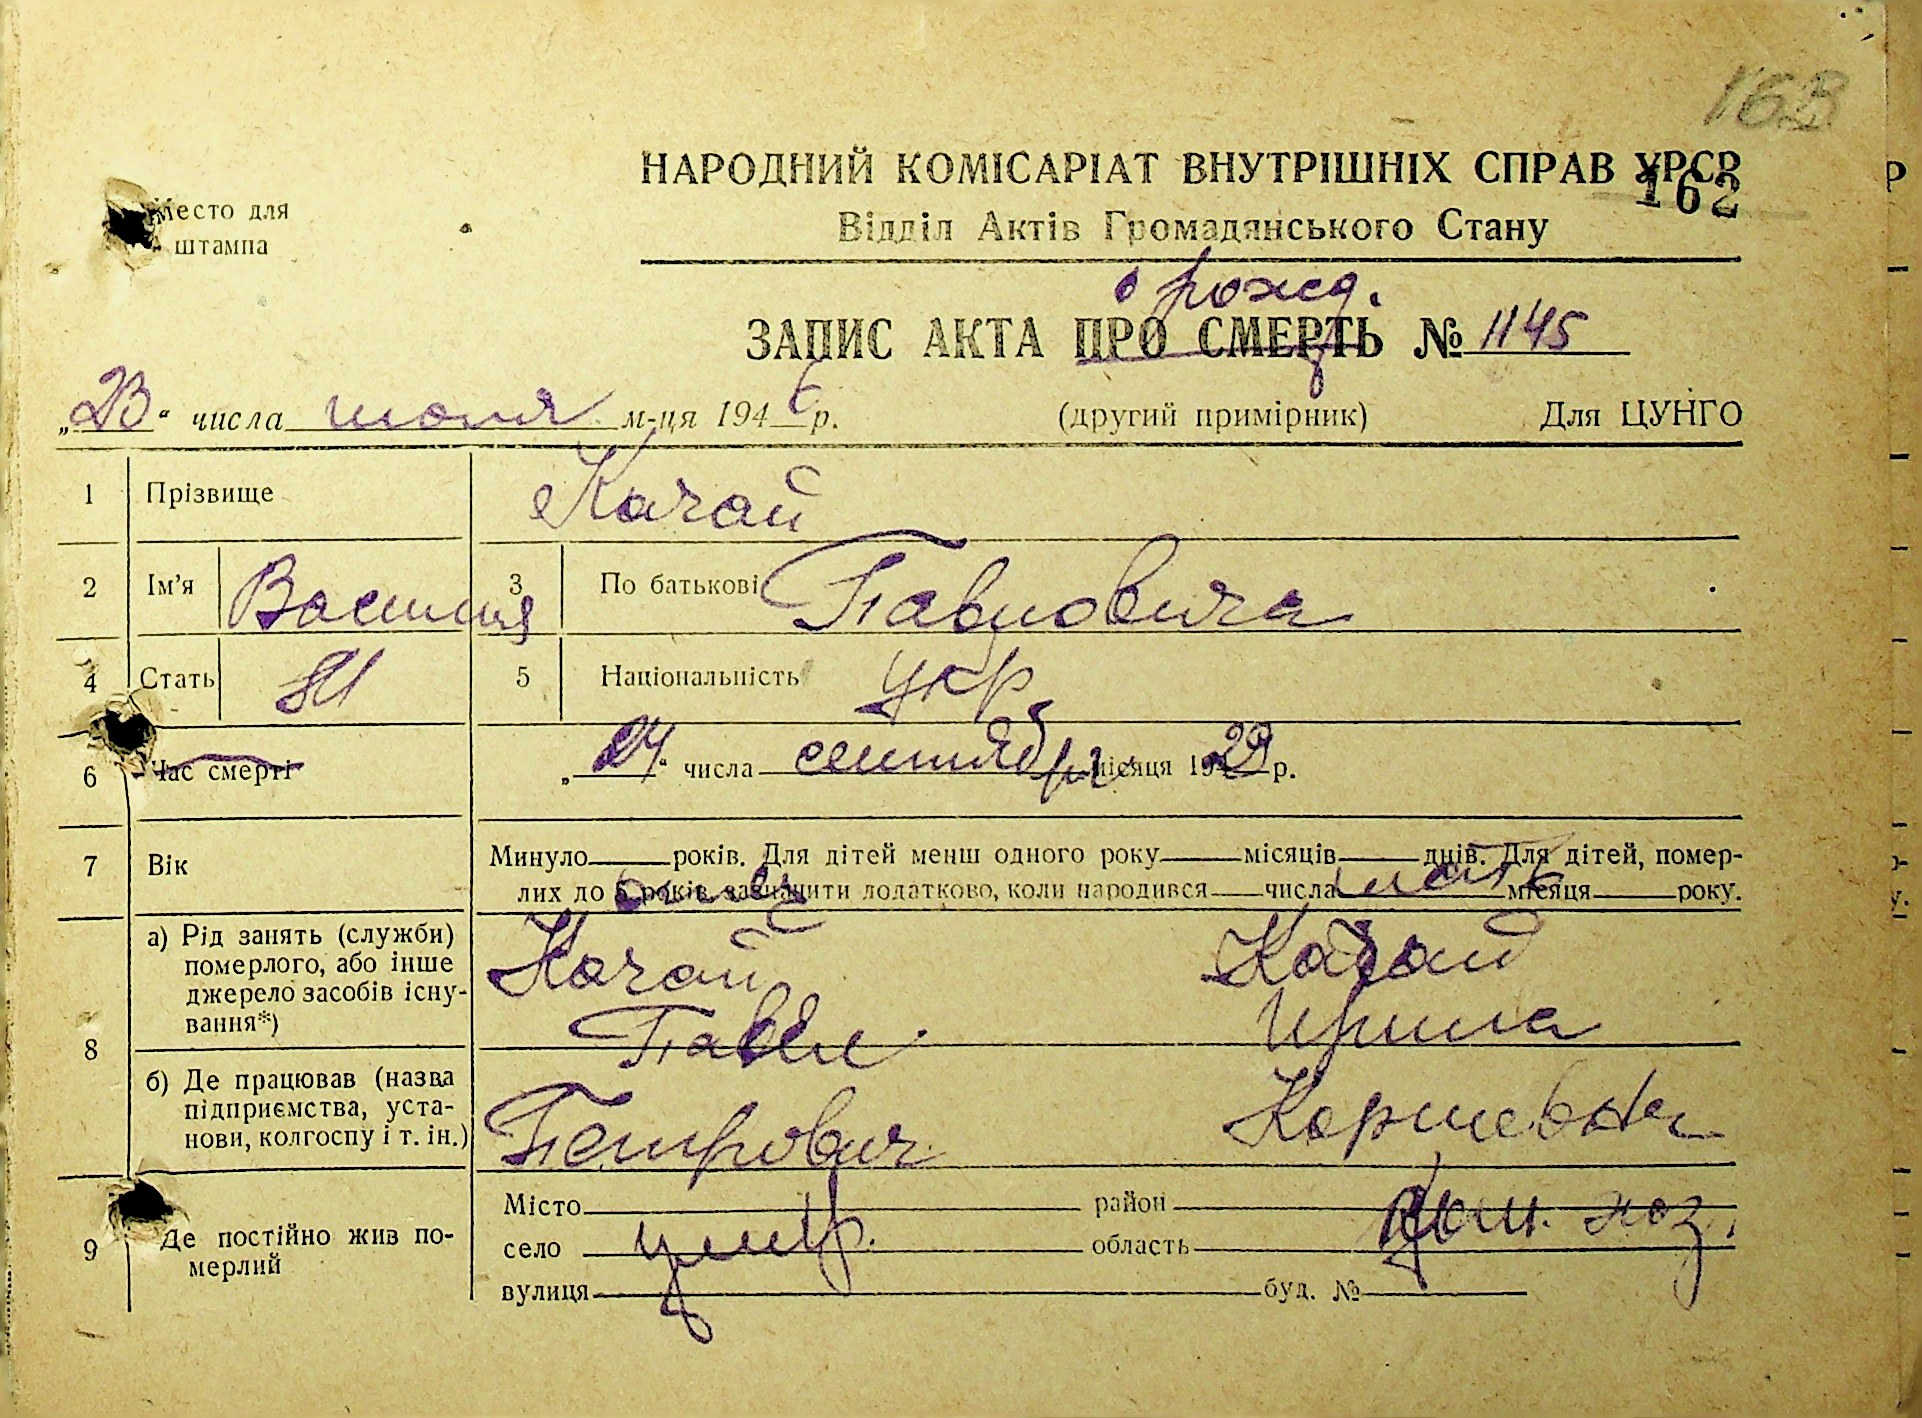 163
НАРОДНИЙ КОМІСАРІАТ ВНУТРІШНІХ СПРАВ УРСР
162
Место для
штампа
Відділ Актів Громадянського Стану
о рожд.
ЗАПИС АКТА ПРО СМЕРТЬ № 1145
„23“ числа июля м-ця 1946 р. (другий примірник) Для ЦУНГО
1 Прізвище Качай
2 Ім'я Василия 3 По батькові Павловича
4 Стать М 5 Національність укр
6 Час смерті „24“ числа сентября місяця 1929 р.
7 Вік Минуло років. Для дітей менш одного року місяців днів. Для дітей, помер-
лих до 5 років зазначити додатково, коли народився числа місяця року.
отец мать
8 а) Рід занять (служби)
померлого, або інше
джерело засобів існу-
вання*)
Качай Качай
Павел Ирина
б) Де працював (назва
підприємства, уста-
нови, колгоспу і т. ін.)
Петрович Корнеевна
9 Де постійно жив по-
мерлий
Місто район
село область
вулиця буд. №